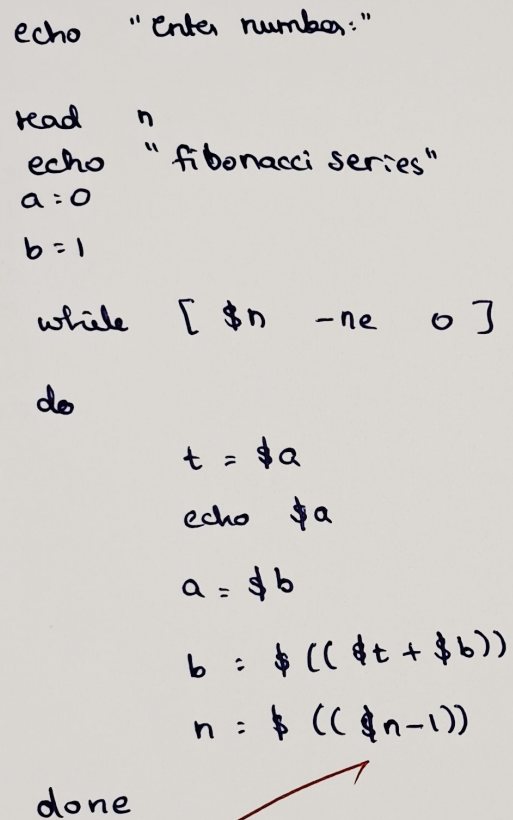 echo "Enter number:"
read n
echo "fibonacci series"
a=0
b=1
while [ $n -ne 0 ]
do
t = $a
echo $a
a = $b
b = $(( $t + $b))
n = $(( $n-1))
done